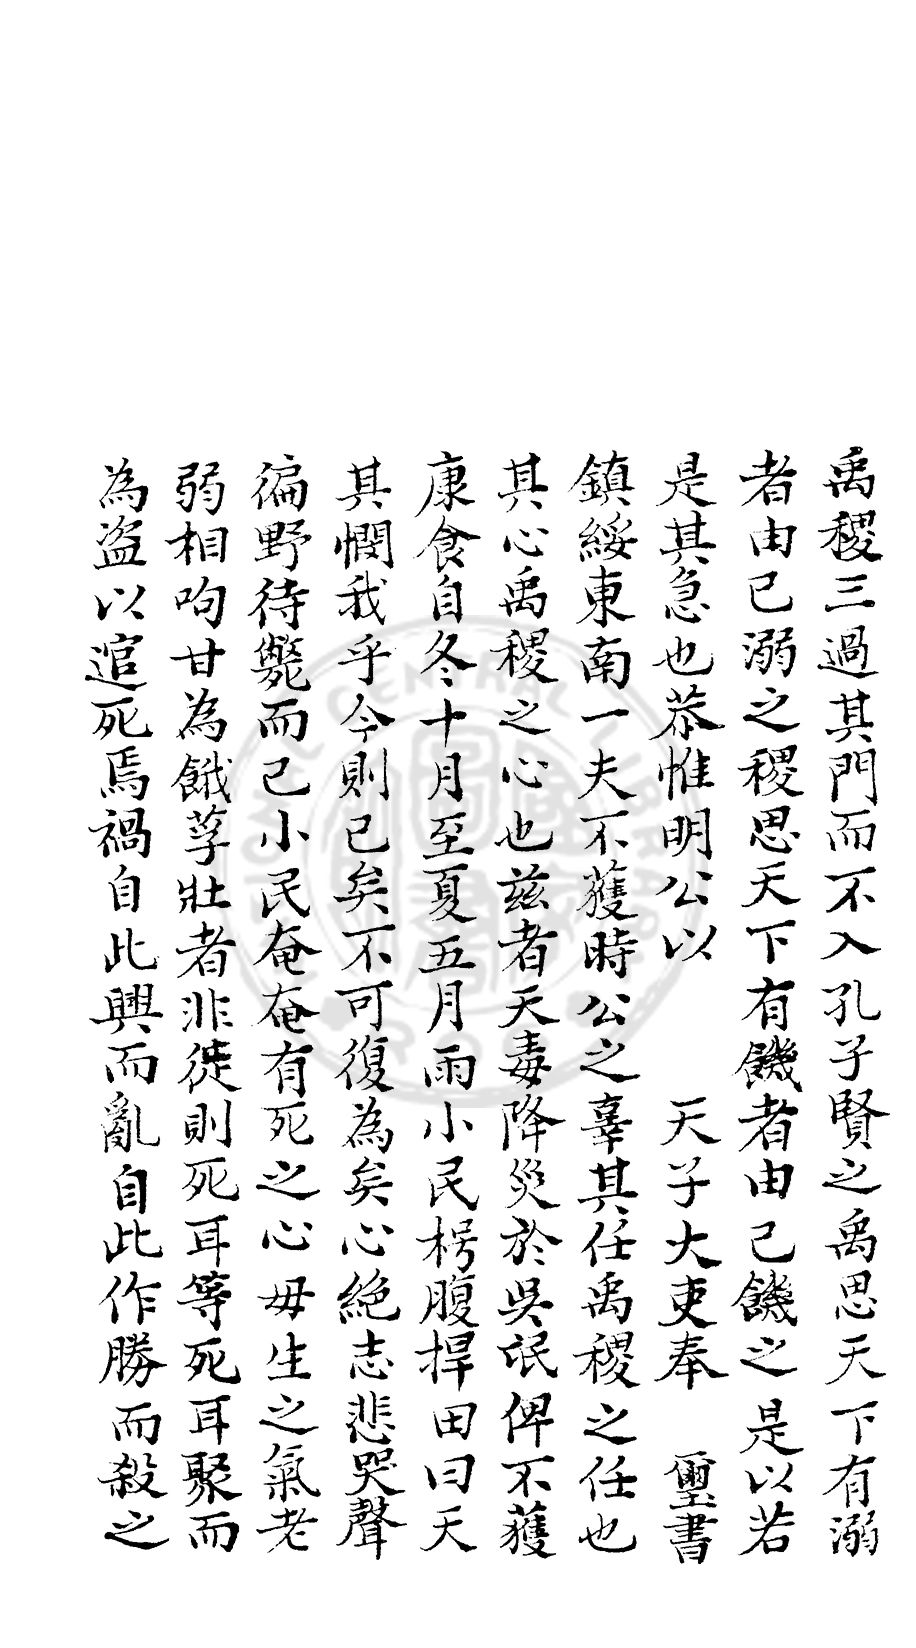 禹稷三過其門而不入孔子賢之禹思天下有溺
者由己溺之稷思天下有饑者由己饑之是以若
是其急也恭惟明公以　天子大吏奉　璽書
鎮綏東南一夫不獲時公之辜其任禹稷之任也
其心禹稷之心也兹者天毒降災於吳氓俾不獲
康食自冬十月至夏五月雨小民枵腹捍田曰天
其憫我乎今則已矣不可復為矣心絶志悲哭聲
徧野待斃而已小民奄奄有死之心毋生之氣老
弱相呴甘為餓莩壯者非徙則死耳等死耳聚而
為盗以逭死焉禍自此興而亂自此作勝而殺之
NATIONAL CENTRAL LIBRARY
R.O.C.